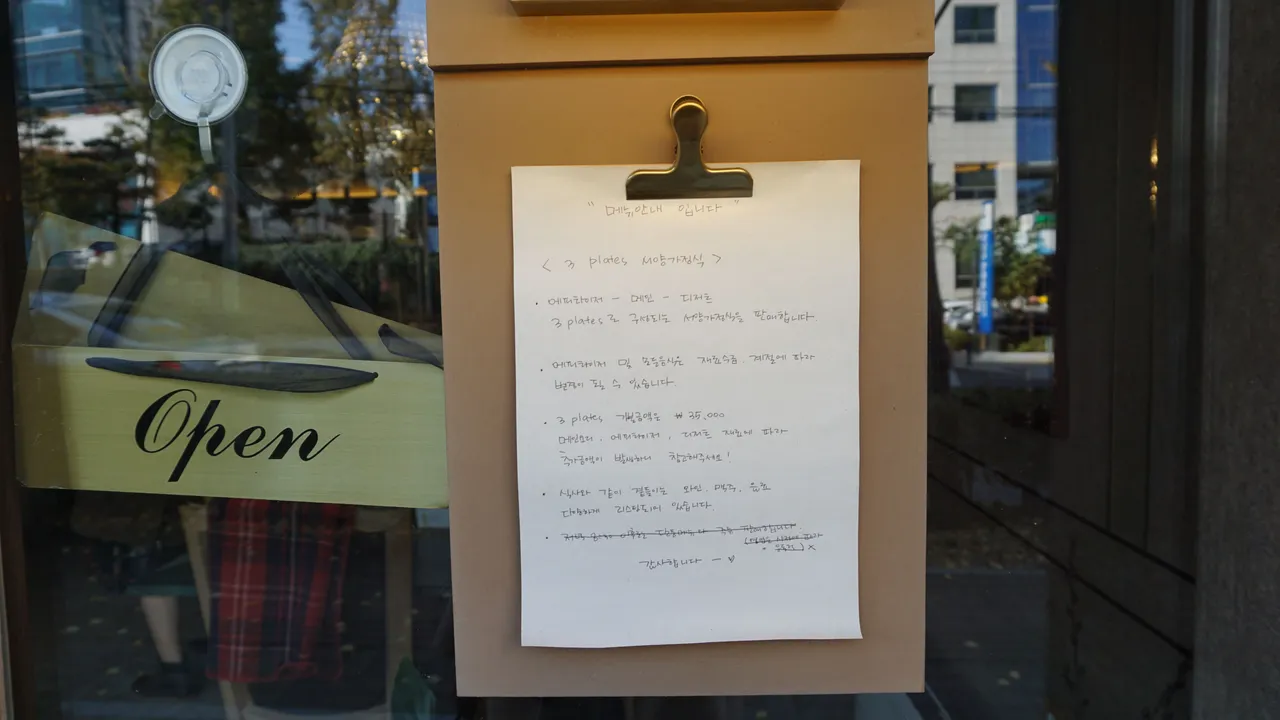 Open
" 메뉴안내 입니다 "
< 3 plates 서양가정식 >
· 에피타이저 - 메인 - 디저트
3 plates로 구성되는 서양가정식을 판매합니다.
· 에피타이저 및 모든음식은 재료수급, 계절에 따라
변경이 될 수 있습니다.
· 3 plates 기본금액은 ₩ 35,000
메인요리, 에피타이저, 디저트 재료에 따라
추가금액이 발생하니 참고해주세요!
· 식사와 같이 곁들이는 와인, 맥주, 음료
다양하게 리스트되어 있습니다.
판매합니다.
감사합니다 - ♥